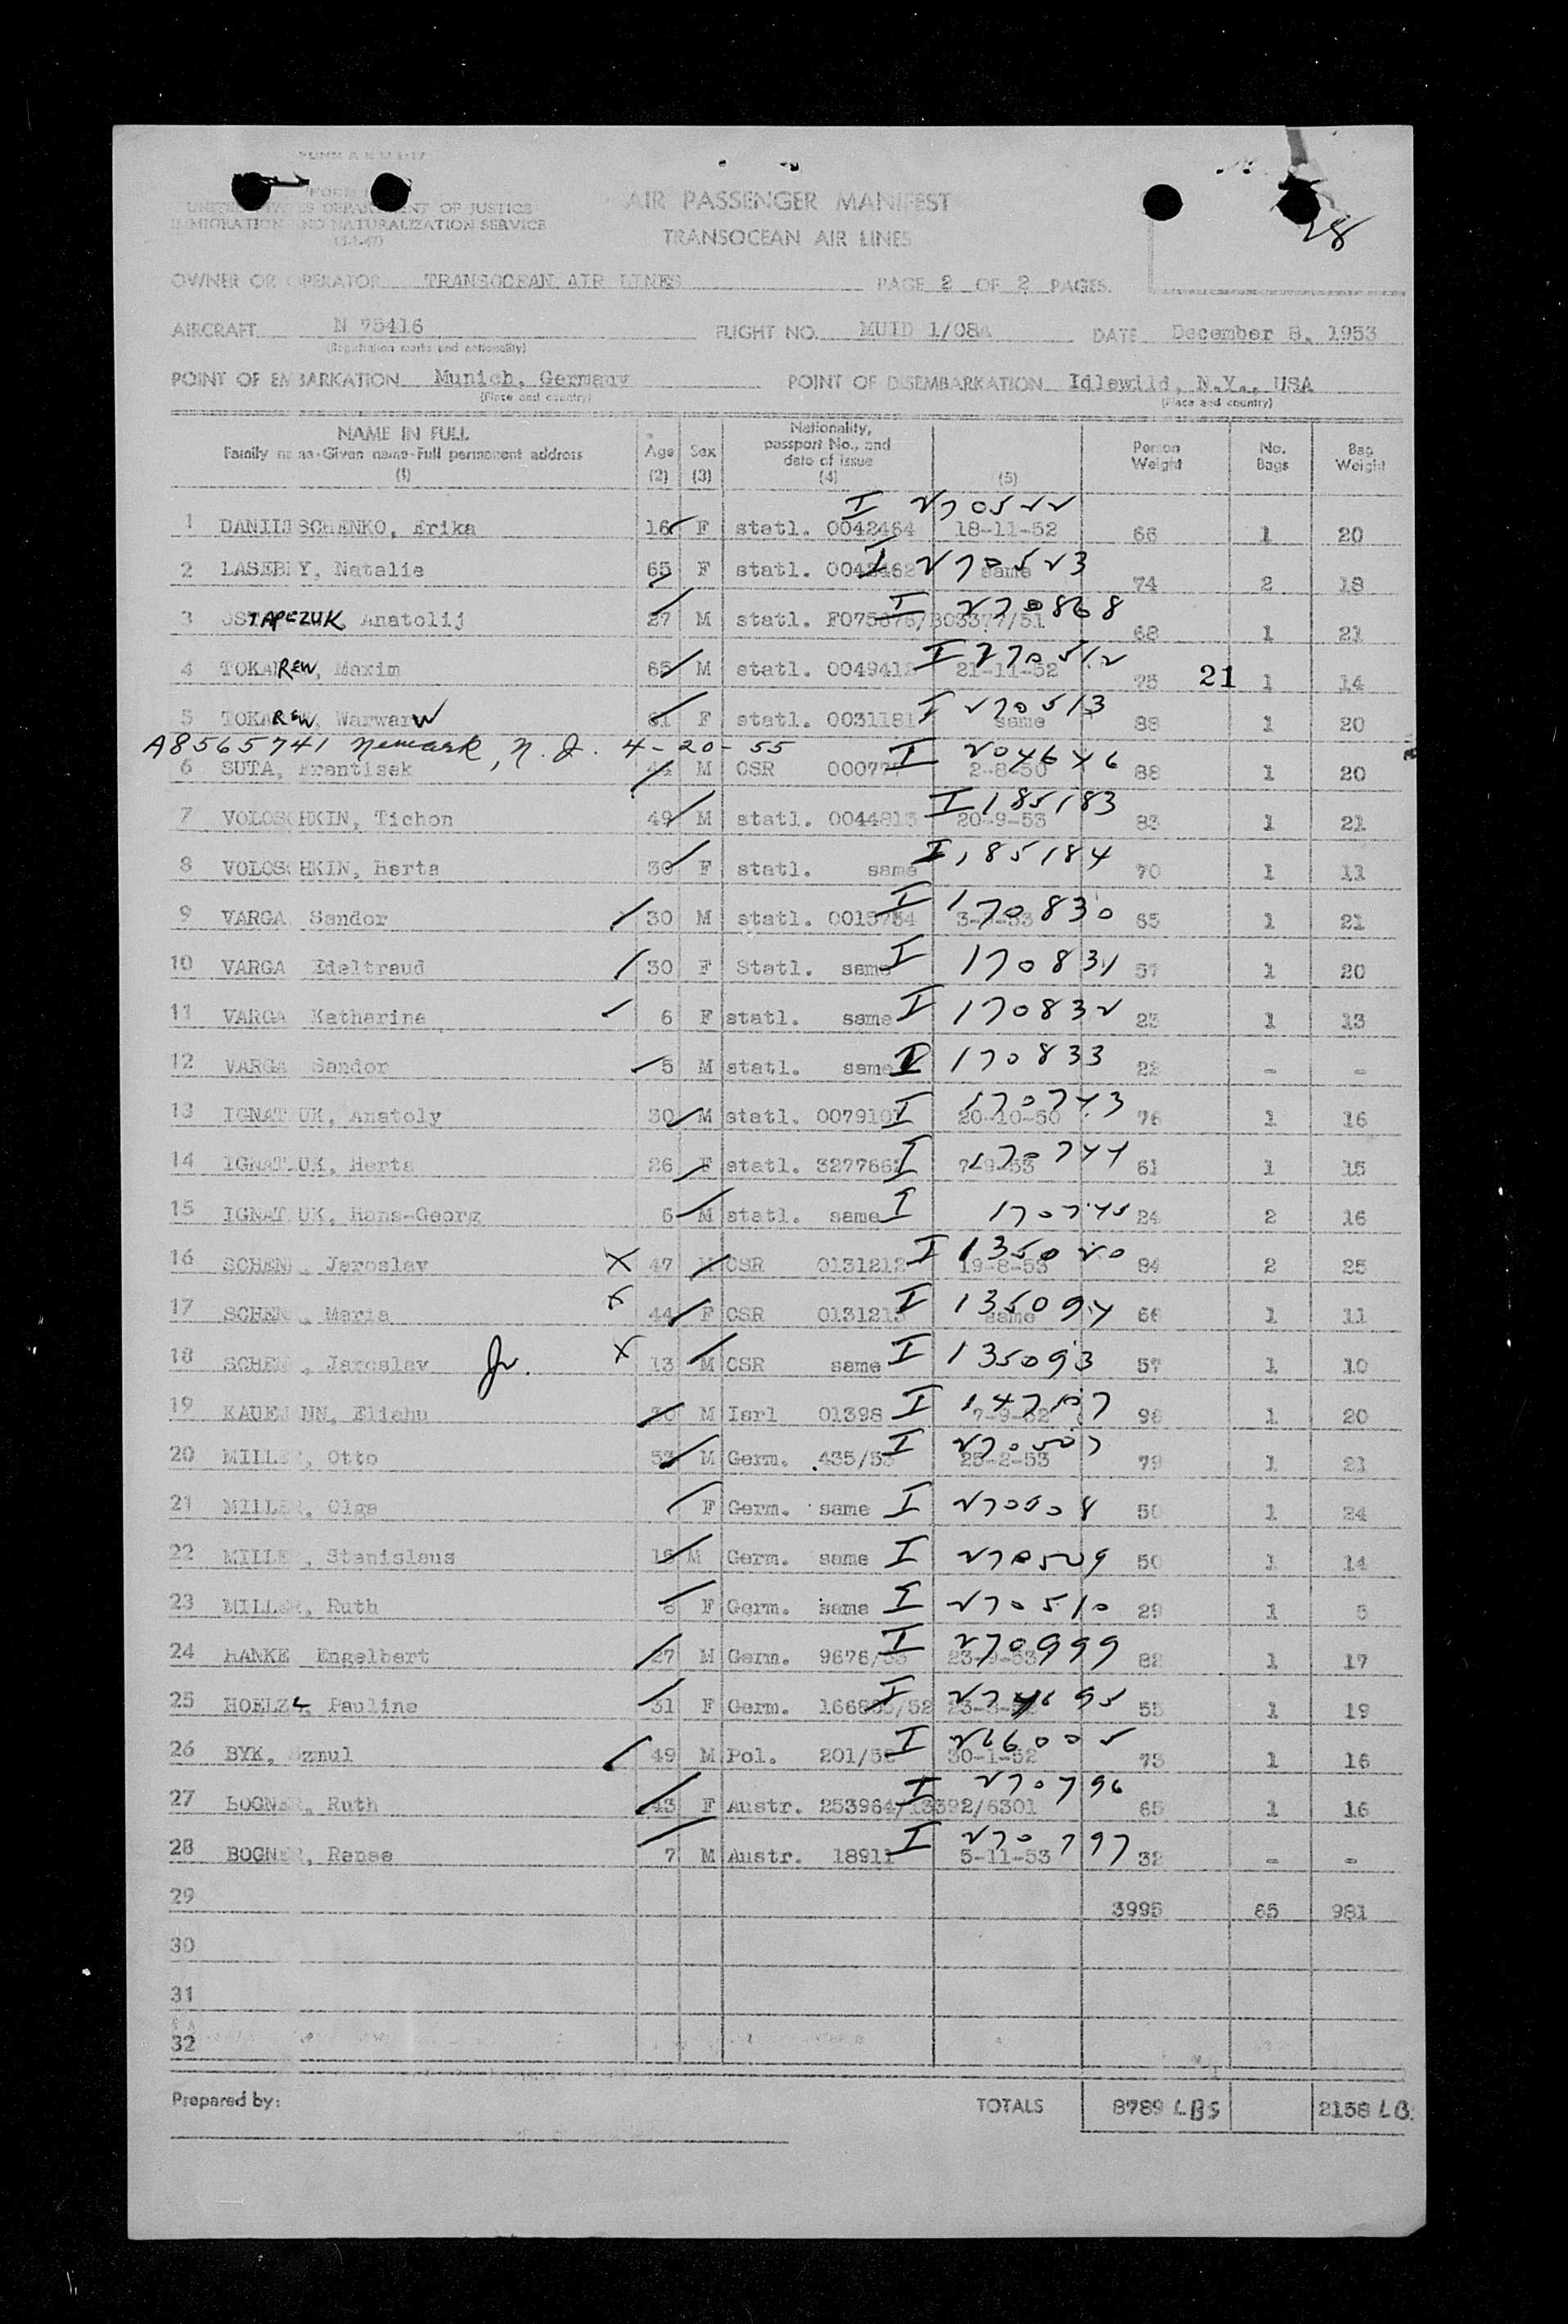 FORM
UNITED STATES DEPARTMENT OF JUSTICE
IMMIGRATION AND NATURALIZATION SERVICE
AIR PASSENGER MANIFEST
TRANSOCEAN AIR LINES
28
OWNER OR OPERATOR TRANSOCEAN AIR LINES PAGE 2 OF 2 PAGES
AIRCRAFT N 75416 FLIGHT NO. MUID 1/08A DATE December 8, 1953
(Registration marks and nationality)
POINT OF EMBARKATION Munich, Germany POINT OF DISEMBARKATION Idlewild, N.Y., USA
(Place and country) (Place and country)
NAME IN FULL Family name-Given name-Full permanent address (1) Age (2) Sex (3) Nationality, passport No., and date of issue (4) (5) Person Weight No. Bags Bag Weight
I 270522
1 DANILISCHENKO, Erika 16 F statl. 0042464 18-11-52 66 1 20
I 270523
2 LASEBNY, Natalie 65 F statl. same 74 2 18
I 270868
3 OSTAPCZUK, Anatolij 27 M statl. 68 1 21
I 270512
4 TOKAREW, Maxim 65 M statl. 0049412 21-11-52 75 21 1 14
I 270513
5 TOKAREW, Warwar 61 F statl. 0031181 same 88 1 20
A8565741 Newark, N.J. 4-20-55 I 204646
6 SUTA, Frantisek 44 M CSR 2-8-50 88 1 20
I 185183
7 VOLOSCHKIN, Tichon 49 M statl. 0044813 20-9-53 83 1 21
I 185184
8 VOLOSCHKIN, Herta 30 F statl. same 70 1 11
I 170830
9 VARGA Sandor 30 M statl. 65 1 21
I 170831
10 VARGA Edeltraud 30 F Statl. same 57 1 20
I 170832
11 VARGA Katharina 6 F statl. same 23 1 13
I 170833
12 VARGA Sandor 5 M statl. same 22 - -
I 170743
13 IGNATIUK, Anatoly 30 M statl. 20-10-50 76 1 16
I 170744
14 IGNATIUK, Herta 26 F statl. 7-9-53 61 1 15
I 170745
15 IGNATIUK, Hans-Georg 6 M statl. same 24 2 16
I 135020
16 SCHENK, Jaroslav X 47 M CSR 0131212 19-8-53 84 2 25
I 135094
17 SCHENK, Maria X 44 F CSR 0131213 same 66 1 11
I 135093
18 SCHENK, Jaroslav Jr. X 13 M CSR same 57 1 10
I 147107
19 KAUFMANN, Eliahu 30 M Isrl 01398 7-9-52 96 1 20
I 270507
20 MILLER, Otto 53 M Germ. 435/53 25-2-53 79 1 21
21 MILLER, Olga F Germ. same I 270508 50 1 24
22 MILLER, Stanislaus 16 M Germ. same I 270509 50 1 14
23 MILLER, Ruth F Germ. same I 270510 29 1 5
I 270999
24 HANKE Engelbert 27 M Germ. 23-9-53 82 1 17
25 HOELZL, Pauline 31 F Germ. 55 1 19
I 266005
26 BYK, Szmul 49 M Pol. 30-1-52 73 1 16
I 270796
27 BOGNER, Ruth 43 F Austr. 253964/13392/6301 65 1 16
I 270797
28 BOGNER, Renee 7 M Austr. 18911 5-11-53 32 - -
29 3995 65 981
30
31
32
Prepared by: TOTALS 8789 LBS 2158 LB